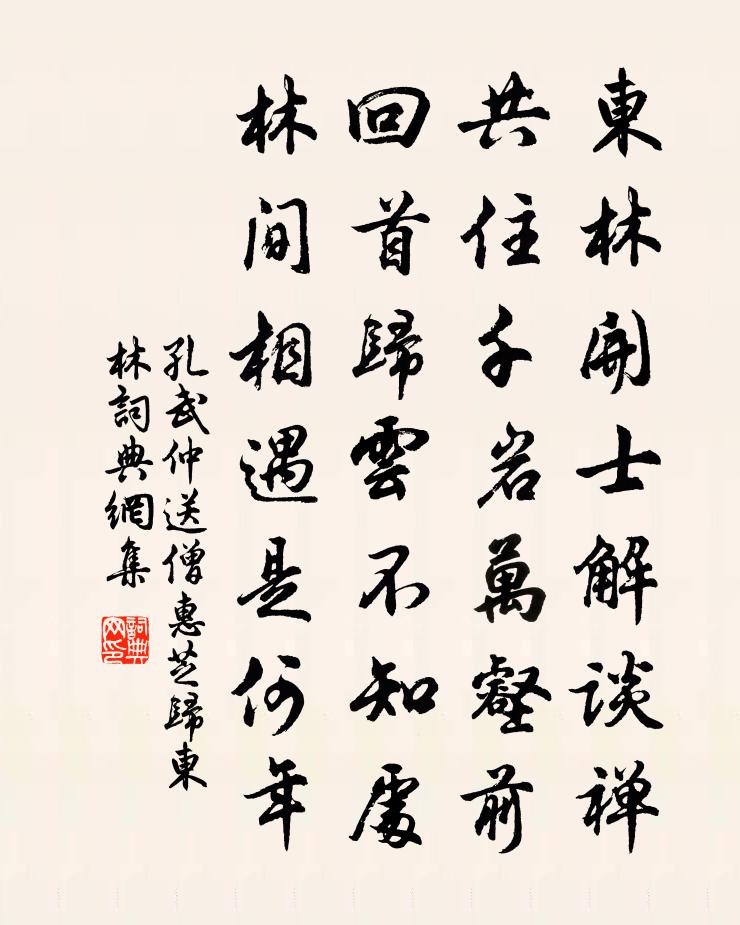 東林開士解談禅
共住千岩萬壑前
回首歸雲不知處
林間相遇是何年
孔武仲送僧惠芝歸東
林詞典網集
詞典网印